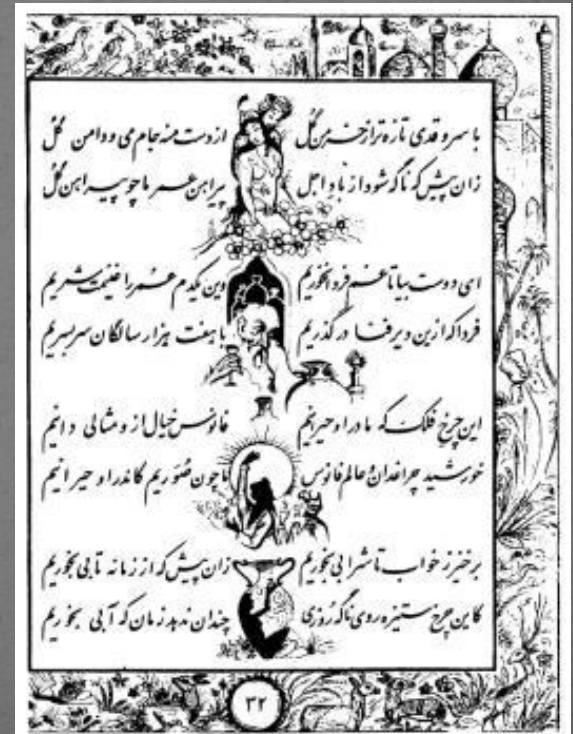 با سرو قدی تازه‌تر از خرمن گل از دست منه جام می و دامن گل
زان پیش که ناگه شود از باد اجل پیراهن عمر ما چو پیراهن گل
ای دوست بیا تا غم فردا نخوریم وین یکدم عمر را غنیمت شمریم
فردا که ازین دیر فنا درگذریم با هفت هزار سالگان سر بسریم
این چرخ فلک که ما در او حیرانیم فانوس خیال از و مثالی دانیم
خورشید چراغدان و عالم فانوس ما چون صُوَریم کاندر او حیرانیم
برخیز ز خواب تا شرابی بخوریم زان پیش که از زمانه تابی بخوریم
کاین چرخ ستیزه روی ناگه روزی چندان ندهد زمان که آبی بخوریم
۳۲